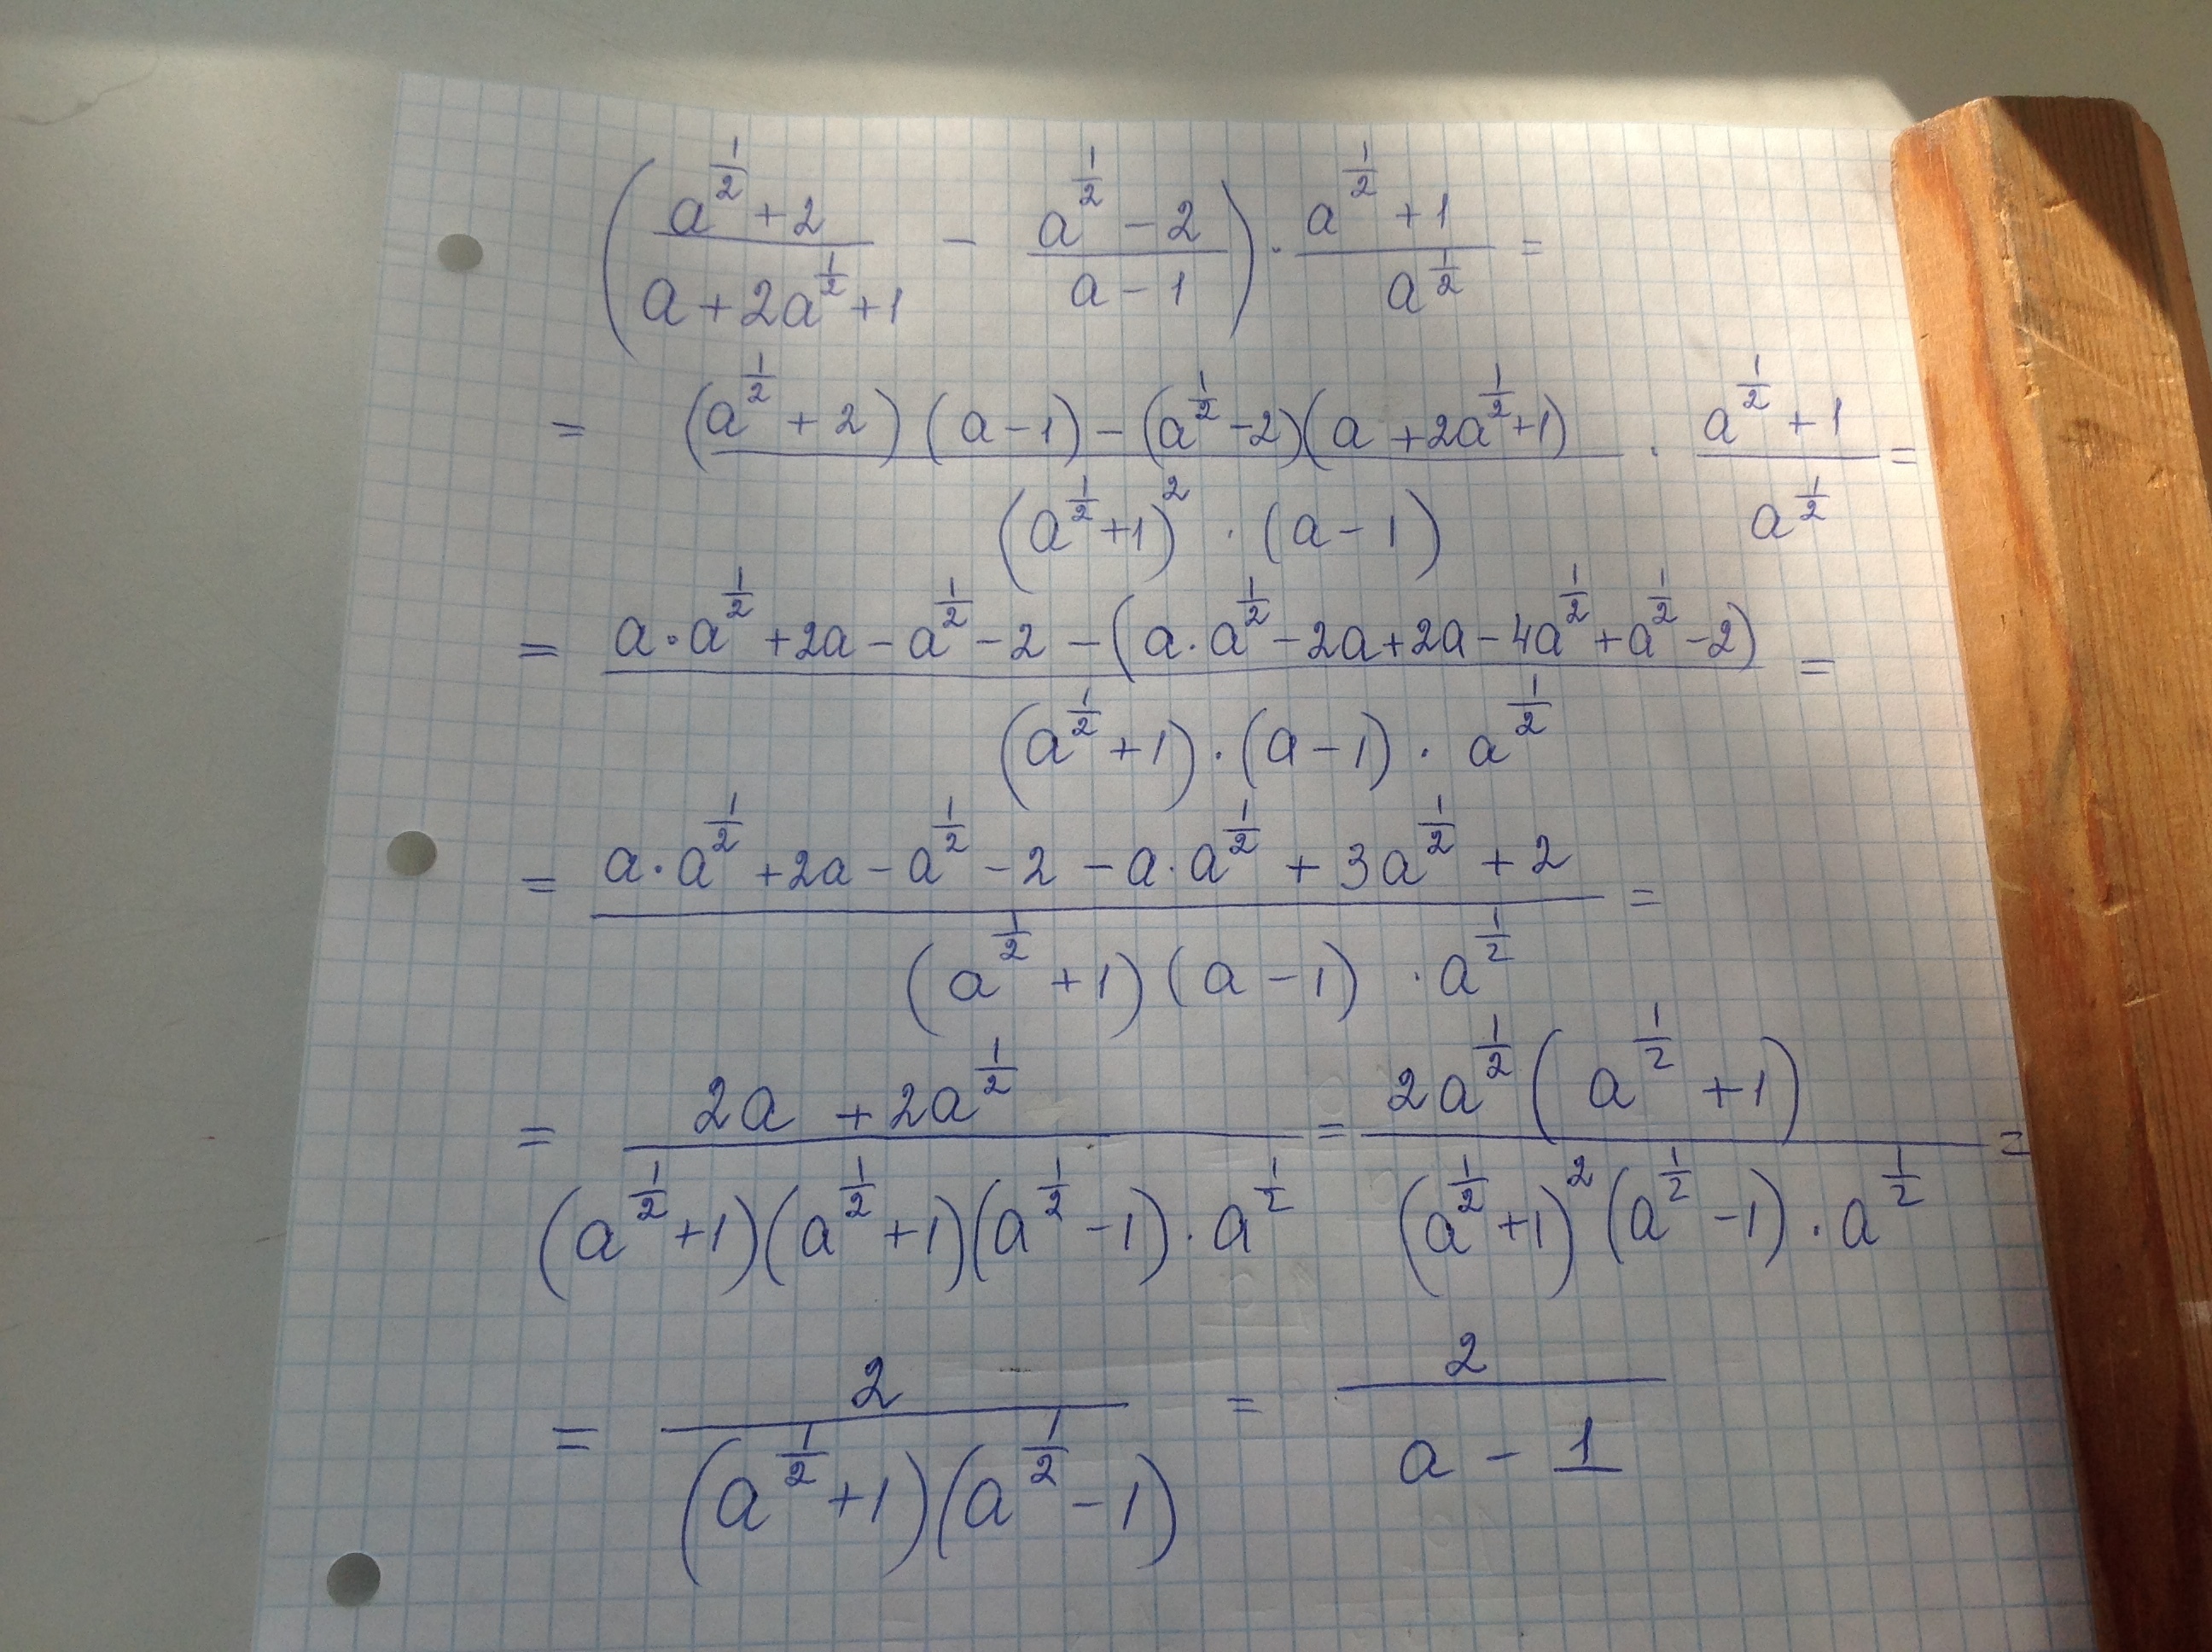 (\frac{a^{\frac{1}{2}}+2}{a+2a^{\frac{1}{2}}+1} - \frac{a^{\frac{1}{2}}-2}{a-1}) \cdot \frac{a^{\frac{1}{2}}+1}{a^{\frac{1}{2}}} =
= \frac{(a^{\frac{1}{2}}+2)(a-1)-(a^{\frac{1}{2}}-2)(a+2a^{\frac{1}{2}}+1)}{(a^{\frac{1}{2}}+1)^2 \cdot (a-1)} \cdot \frac{a^{\frac{1}{2}}+1}{a^{\frac{1}{2}}} =
= \frac{a \cdot a^{\frac{1}{2}}+2a-a^{\frac{1}{2}}-2-(a \cdot a^{\frac{1}{2}}-2a+2a-4a^{\frac{1}{2}}+a^{\frac{1}{2}}-2)}{(a^{\frac{1}{2}}+1) \cdot (a-1) \cdot a^{\frac{1}{2}}} =
= \frac{a \cdot a^{\frac{1}{2}}+2a-a^{\frac{1}{2}}-2-a \cdot a^{\frac{1}{2}}+3a^{\frac{1}{2}}+2}{(a^{\frac{1}{2}}+1)(a-1) \cdot a^{\frac{1}{2}}} =
= \frac{2a+2a^{\frac{1}{2}}}{(a^{\frac{1}{2}}+1)(a^{\frac{1}{2}}+1)(a^{\frac{1}{2}}-1) \cdot a^{\frac{1}{2}}} = \frac{2a^{\frac{1}{2}}(a^{\frac{1}{2}}+1)}{(a^{\frac{1}{2}}+1)^2(a^{\frac{1}{2}}-1) \cdot a^{\frac{1}{2}}} =
= \frac{2}{(a^{\frac{1}{2}}+1)(a^{\frac{1}{2}}-1)} = \frac{2}{a-1}